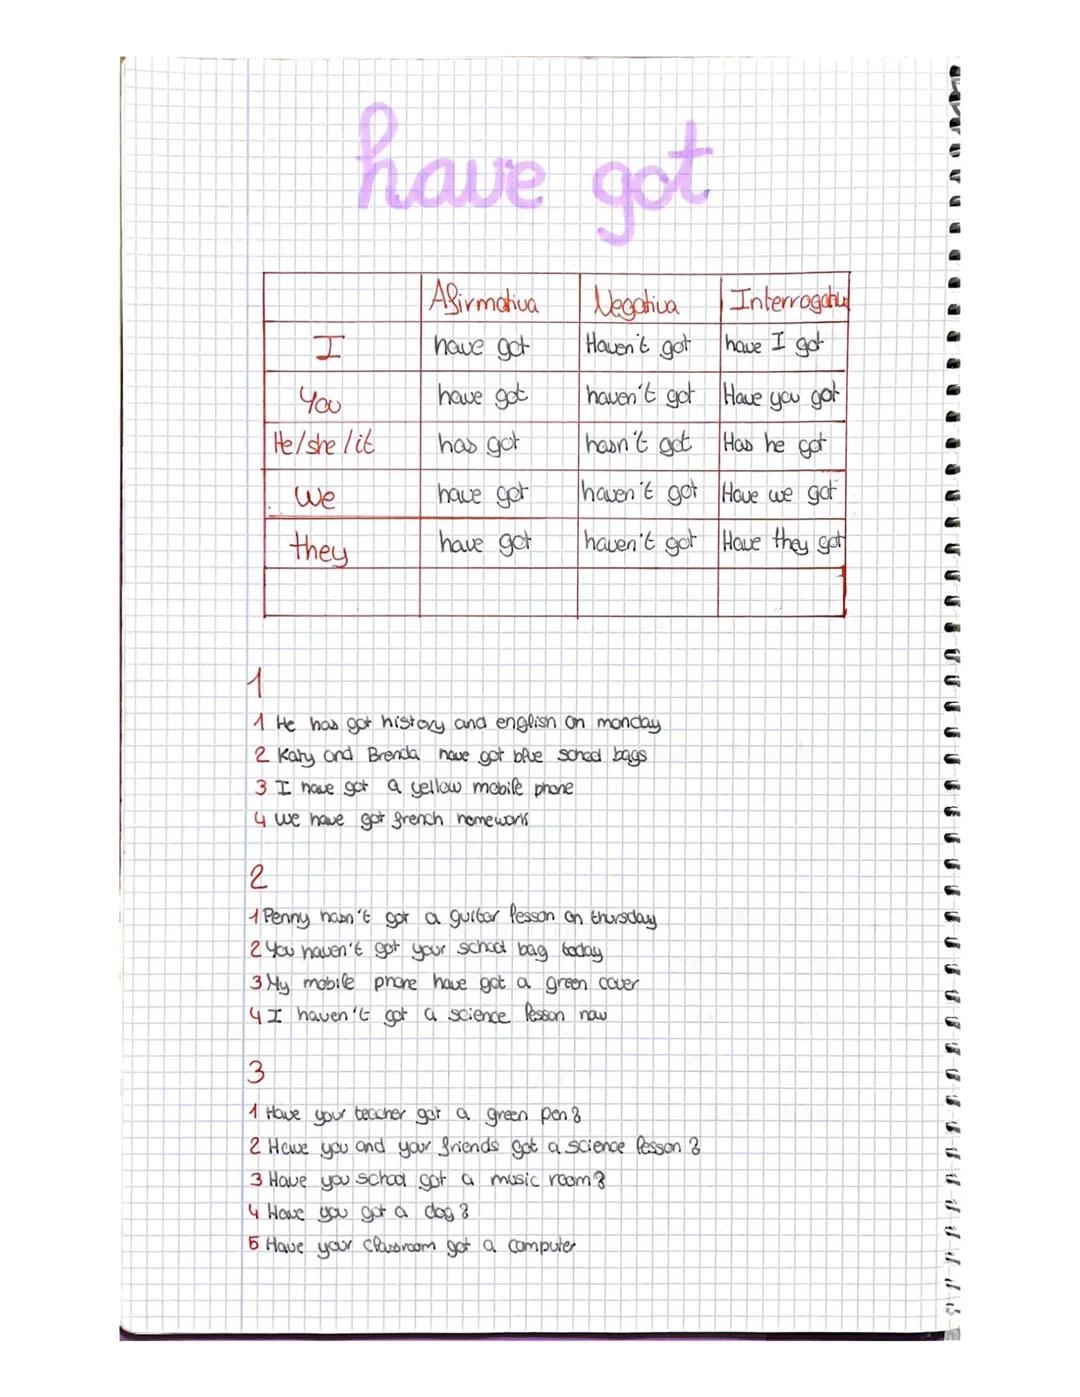 have got
Afirmativa Negativa Interrogativa
I have got Haven't got have I got
You have got haven't got Have you got
He/she/it has got hasn't got Has he got
We have got haven't got Have we got
they have got haven't got Have they got
1
1 He has got history and english on monday
2 Katy and Brenda have got blue school bags
3 I have got a yellow mobile phone
4 We have got french homework
2
1 Penny hasn't got a guitar lesson on thursday
2 You haven't got your school bag today
3 My mobile phone have got a green cover
4 I haven't got a science lesson now
3
1 Have your teacher got a green pen?
2 Have you and your friends got a science lesson?
3 Have you school got a music room?
4 Have you got a dog?
5 Have your classroom got a computer